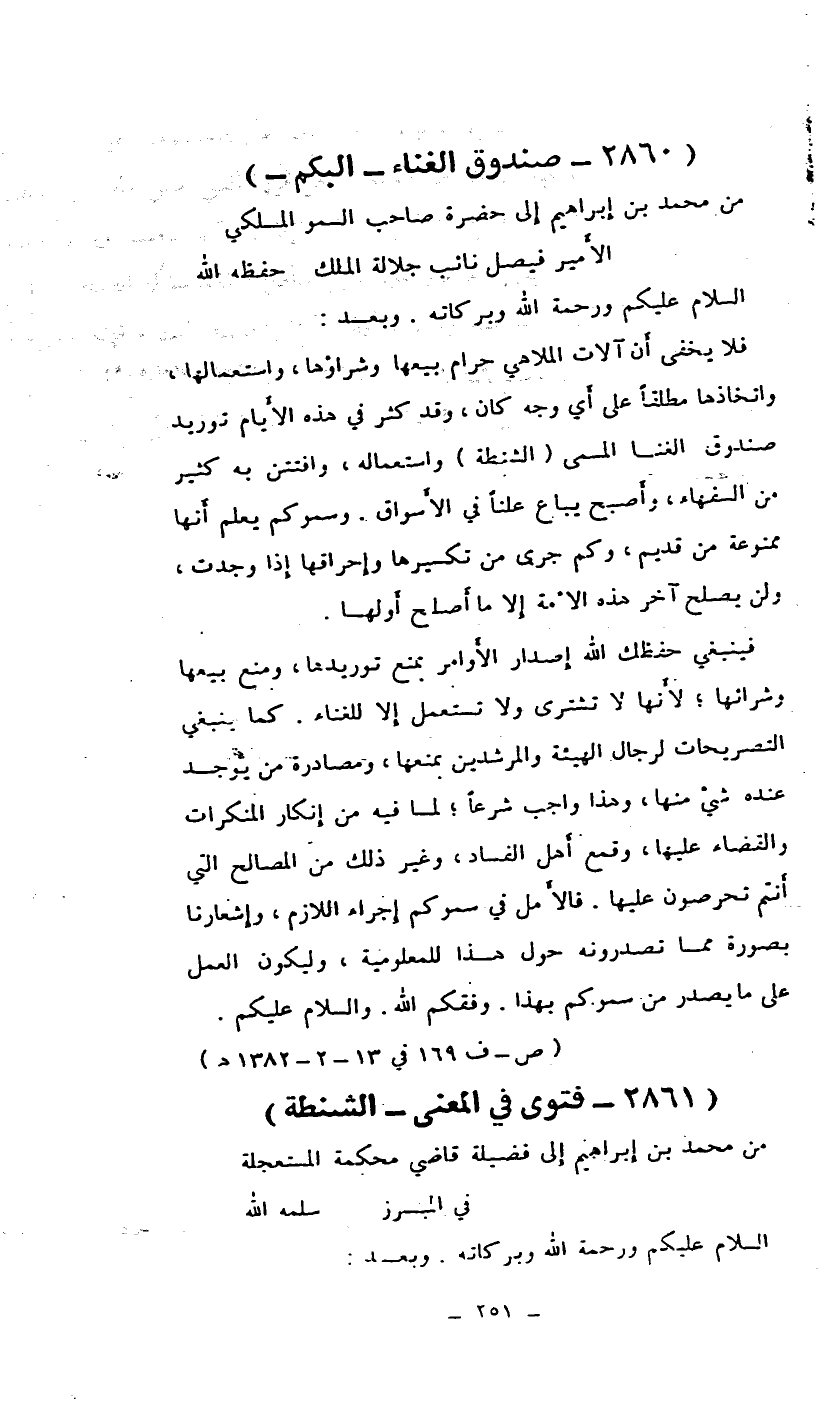 ( ٢٨٦٠ - صندوق الغناء - البكم - )
من محمد بن إبراهيم إلى حضرة صاحب السمو الملكي
الأمير فيصل نائب جلالة الملك حفظه الله
السلام عليكم ورحمة الله وبركاته . وبعد :
فلا يخفى أن آلات الملاهي حرام بيعها وشراؤها ، واستعمالها ،
واتخاذها مطلقاً على أي وجه كان ، وقد كثر في هذه الأيام توريد
صندوق الغنا المسمى ( الشنطة ) واستعماله ، وافتتن به كثير
من السفهاء ، وأصبح يباع علناً في الأسواق . وسموكم يعلم أنها
ممنوعة من قديم ، وكم جرى من تكسيرها وإحراقها إذا وجدت ،
ولن يصلح آخر هذه الأمة إلا ما أصلح أولها .
فينبغي حفظك الله إصدار الأوامر بمنع توريدها ، ومنع بيعها
وشرائها ؛ لأنها لا تشترى ولا تستعمل إلا للغناء . كما ينبغي
التصريحات لرجال الهيئة والمرشدين بمنعها ، ومصادرة من يوجد
عنده شيْ منها ، وهذا واجب شرعاً ؛ لما فيه من إنكار المنكرات
والقضاء عليها ، وقمع أهل الفساد ، وغير ذلك من المصالح التي
أنتم تحرصون عليها . فالأمل في سموكم إجراء اللازم ، وإشعارنا
بصورة مما تصدرونه حول هذا للمعلومية ، وليكون العمل
على ما يصدر من سموكم بهذا . وفقكم الله . والسلام عليكم .
( ص - ف ١٦٩ في ١٣ - ٢ - ١٣٨٢ ه )
( ٢٨٦١ - فتوى في المعنى - الشنطة )
من محمد بن إبراهيم إلى فضيلة قاضي محكمة المستعجلة
في المبرز سلمه الله
السلام عليكم ورحمة الله وبركاته . وبعد :
- ٢٥١ -